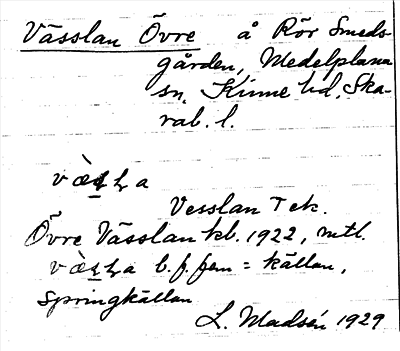 Vässlan Övre å Rör Smeds-
gården, Medelplana
sn, Kinne hd. Ska-
rab. l.
Vesslan T ek.
Övre Vässlan kb. 1922, mtl.
b. f. fem = källan,
Springkällan
L. Madsén 1929